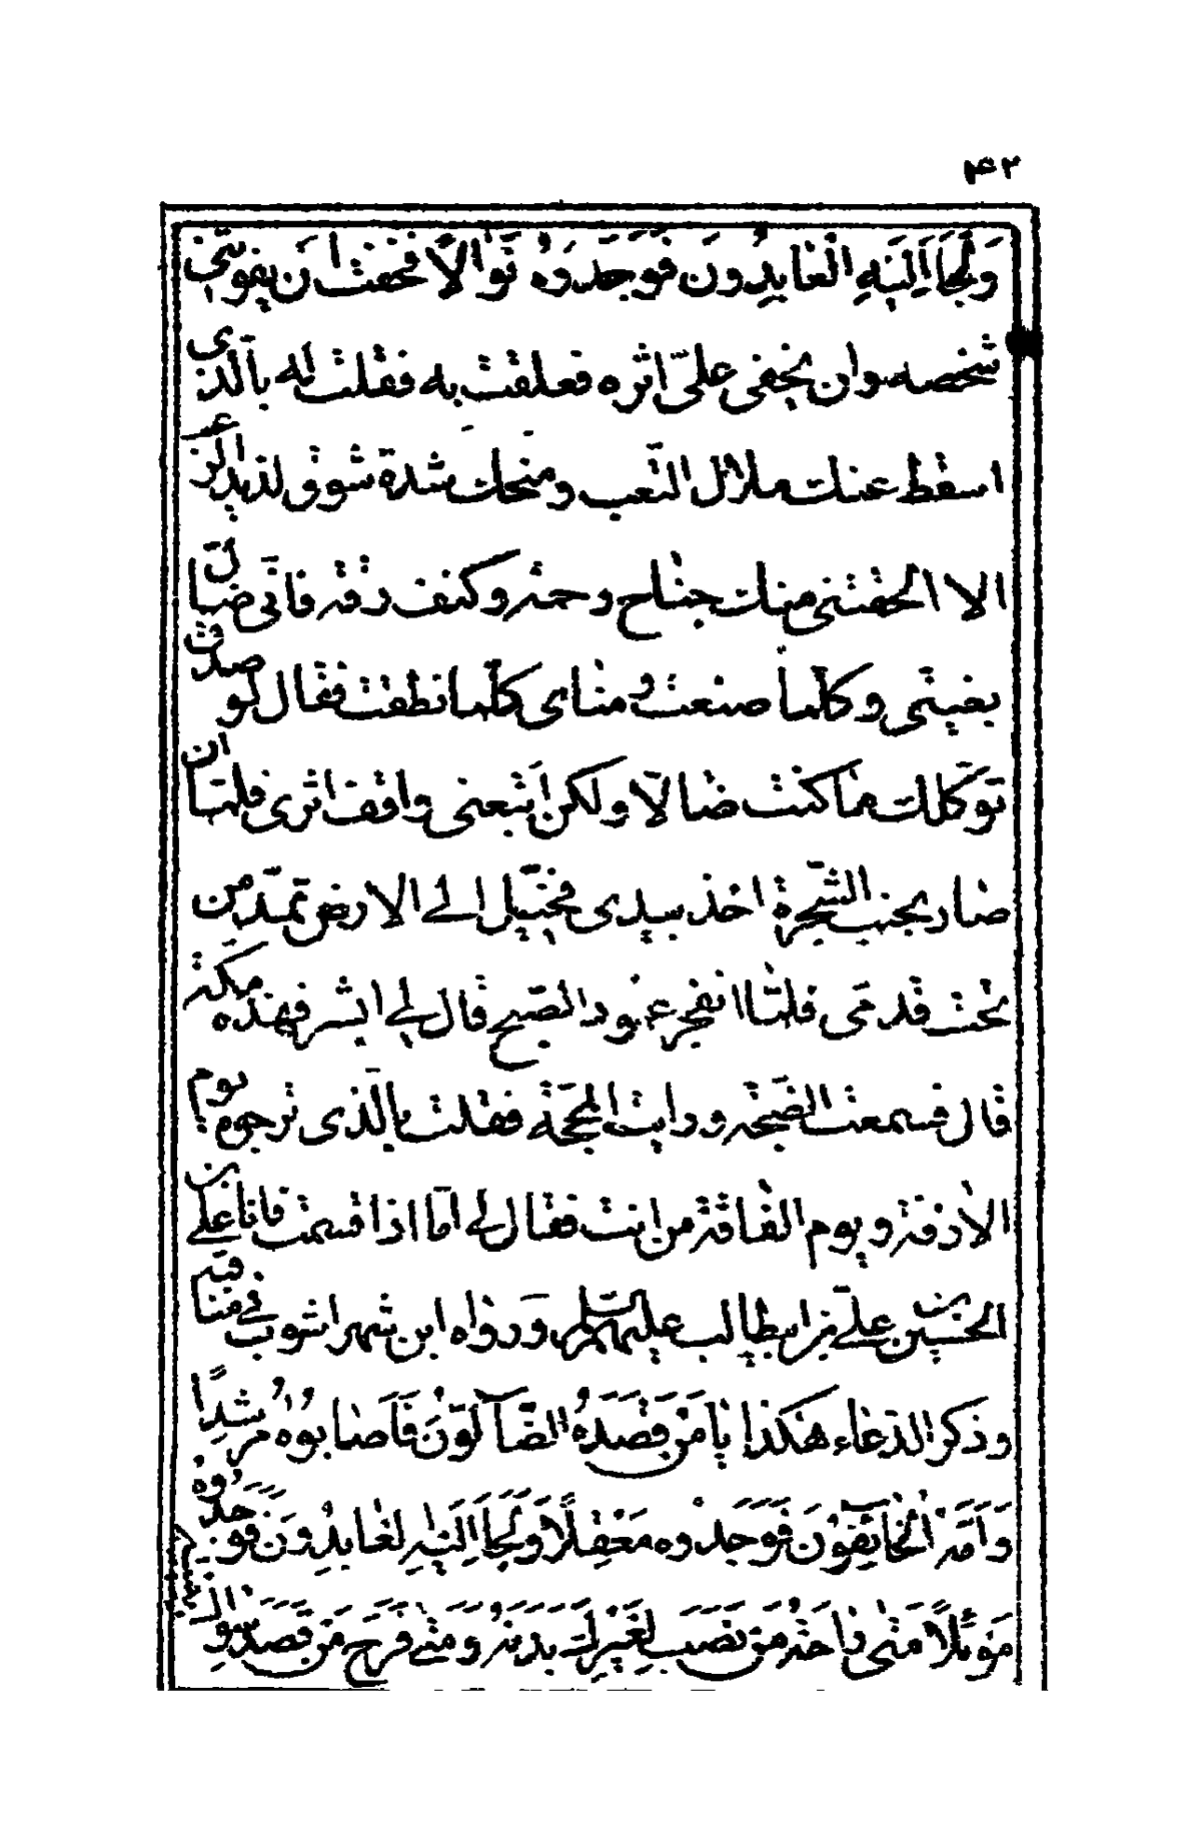 ۴۲
وَلَجَأَ اِلَيْهِ الْعٰابِدُونَ فَوَجَدُوهُ نَوٰالًا فخفت ان يفوتنى
شخصه وان يخفى علىّ اثره فعلقت به فقلت له بالّذى
اسقط عنك ملال التّعب ومنحك شدة شوق لذيذ الرّعب
الا الحفتنى منك جناح رحمة وكنف رقة فانّى ضالّ
بغيتى وكلّما صنعت ومناى كلّما نطقت فقال لو صدق
توكّلك ما كنت ضالّا ولكن اتبعنى واقف اثرى فلمّا ان
صار بجنب الشّجرة اخذ بيدى فخيّل الى الارض تمدّ من
تحت قدمى فلمّا انفجر عمود الصّبح قال لى ابشر فهذه مكّة
قال فسمعت الضّجّة ورايت المحجّة فقلت بالّذى ترجوه يوم
الازفة ويوم الفاقة من انت فقال لى امّا اذا قسمت فانا علىّ بن
الحسين بن علىّ بن ابيطالب عليهم السلم ورواه ابن شهراشوب فى مناقبه
وذكر الدّعاء هكذا يٰا مَنْ قَصَدَهُ الضّٰآلّوُنَ فَاَصٰابوُهُ مُرْشِدًا
وَاَمَّهُ الْخٰائِفوُنَ فَوَجَدوُه مَعْقِلًا وَلَجَأَ اِلَيْهِ الْعٰابِدُونَ فَوَجَدُوهُ
مَوْئِلًا مَتٰى رٰاحَةُ مَنْ نَصَبَ لِغَيْرِكَ بَدَنَهُ وَمَتٰى فَرَجُ مَنْ قَصَدَ سِوٰاكَ